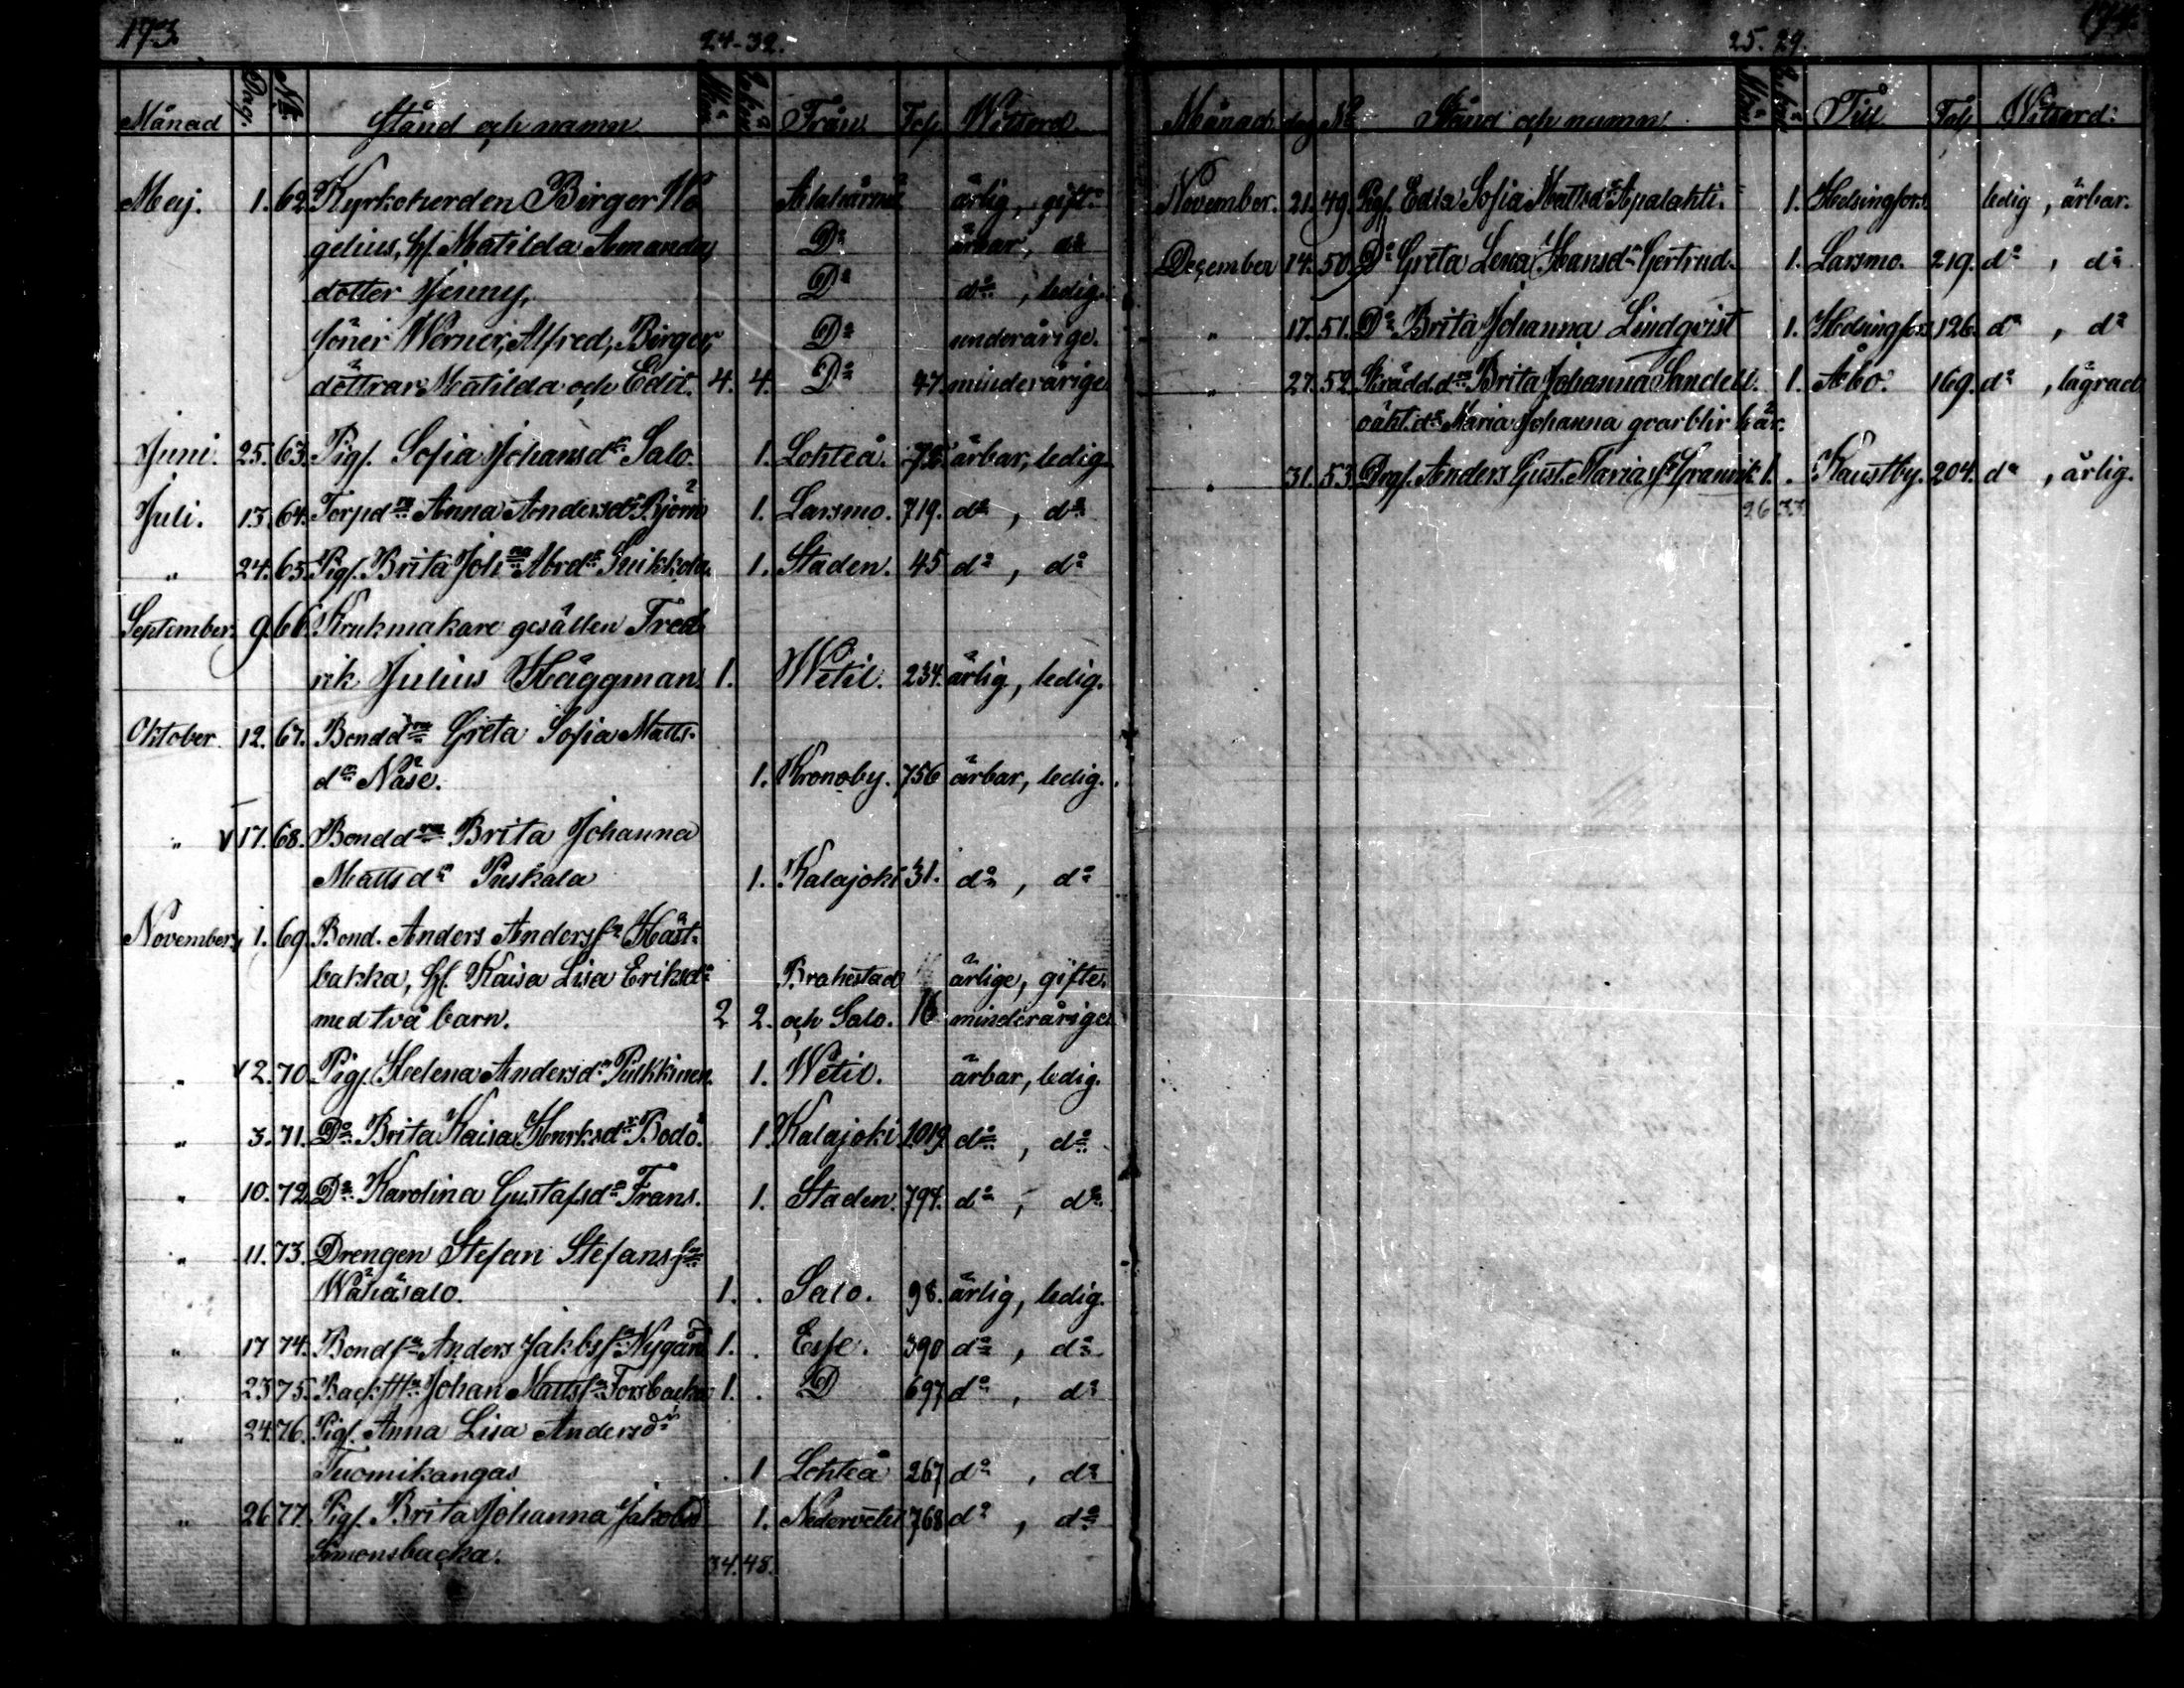 173
24-32.
Månad Dag. No Stånd och namn Från Fol. Wittsord.
Maj. 1. 62. Kyrkoherden Birger We
gelius, hf. Matilda Amanda, Do ärbar, do
dotter Jenny, Do do, ledig.
söner Werner, Alfred, Birger, Do underårige.
döttrar Matilda och Edit. 4. 4. Do 47. minderårige
Juni. 25. 63. Pig. Sofia Johansdr Salo. 1. Lohteå. ärbar, ledig.
Juli. 13. 64. Torpdrn Anna Andersdr Björn 1. Larsmo. 719. do, do
" 24. 65. Pig. Brita Johna Abrdr 1. Staden. 45 do, do
September. 9. 66. Krukmakare gesällen Fred
rik Julius Häggman. 1. Wetil. 234. ärlig, ledig.
Oktober 12. 67. Bonddrn Greta Sofia Matts-
dr Näse. 1. Kronoby. 756 ärbar, ledig.
" 17. 68. Bonddrn Brita Johanna
Mattsdr Puskala 1. Kalajoki 31. do, do
November, 1. 69. Bond. Anders Andersn Häst-
bakka, hf. Kaisa Lisa Eriksdr Brahestad ärlige, gifte.
med två barn. 2 2. och Salo. 16 minderårige
" 2. 70. Pig. Helena Andersdr Pulkkinen. 1. Wetil. ärbar, ledig.
" 3. 71. Do Brita Kaisa Henrksdr Bodö. 1. Kalajoki 1019 do, do
" 10. 72. Do Karolina Gustafsdr Frans. 1. Staden. 794. do, do
" 11. 73. Drengen Stefan Stefanssn
Wähäsalo. 1. . Salo. 98. ärlig, ledig.
" 17 74. Bondsn Anders Jakobsn Nygård 1. . Esse. 390 do, do
" 23 75. Johan Mattssn Forsbacka 1. . D 697 do, do
" 24. 76. Pig. Anna Lisa Andersdr
Tuomikangas . 1 Lohteå 267 do, do
" 26 77. Pig. Brita Johanna Jakobsd 1. Nedervetil 768 do, do
Simonsbacka. 34. 48.
174.
25. 29.
Månad dag No Stånd och namn Till Fol. Witsord:
November. 21. 49. Pig. Edla Sofia Mattsdr Apalahti. 1. Helsingfors. ledig, ärbar.
December 14. 50. Do Greta Lena Hansdr Gertrud. 1. Larsmo. 219. do, do
" 17. 51. Do Brita Johanna Lindqvist 1. Helsingfors 126. do, do
" 27. 52. Brita Johanna Sandell. 1. Åbo. 169. do, lägrad
oäkt. dr Maria Johanna qvarblir här.
" 31. 53. Drg. Anders Gust. Mariasn Granvik 1. . Kaustby. 204. do, ärlig.
26 33